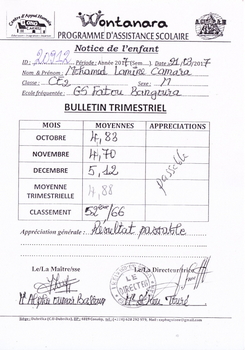 Wontanara
PROGRAMME D'ASSISTANCE SCOLAIRE
Notice de l'enfant
ID: 20912 Période: Année 2017 (Sem...). Date 21/03/2017
Nom & Prénom: Mohamed Lamine Camara
Classe: CE2 Sexe: M
Ecole fréquentée: GS Poitou Bangoura
BULLETIN TRIMESTRIEL
MOIS MOYENNES APPRECIATIONS
OCTOBRE 4,83
NOVEMBRE 4,70
DECEMBRE 5,12
MOYENNE TRIMESTRIELLE 4,88
passable
CLASSEMENT 52è/66
Appréciation générale: Résultat passable
Le/La Maître/sse Le/La Directeur/trice
LE DIRECTEUR
M. Alpha Oumar